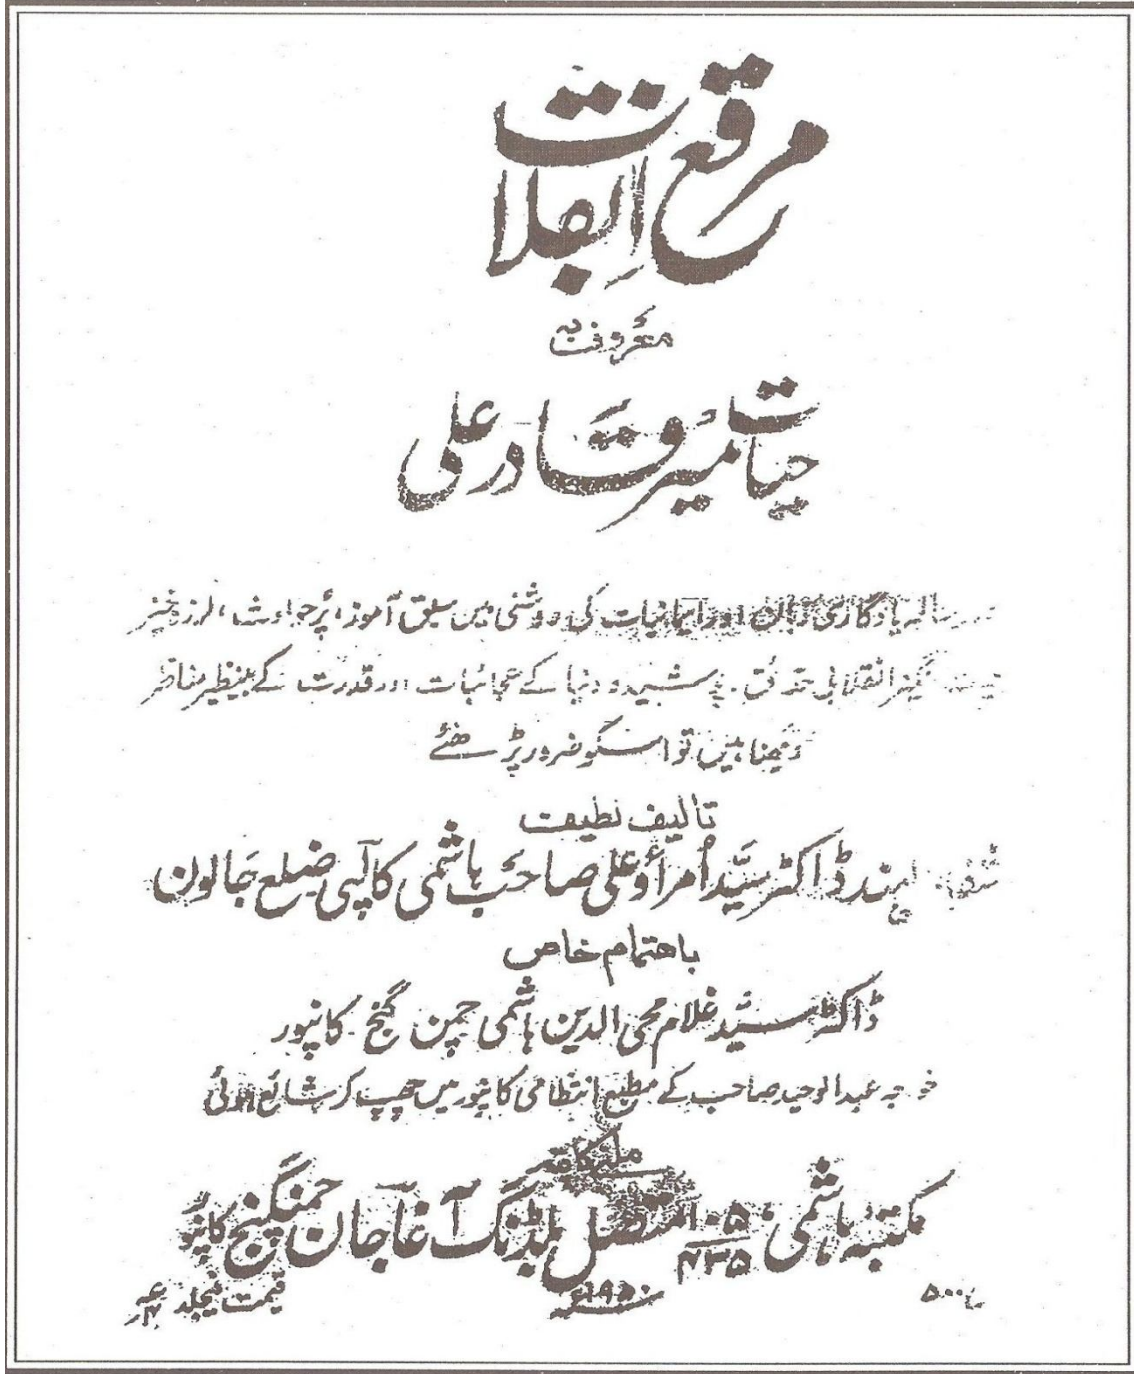 مرقع انقلابات
معروف بہ
حیات میر قادر علی
رسالہ یادگاری زبان اور ایمانیات کی روشنی میں سبق آموز، پُرحوادث، لرزہ خیز
انقلابی حقائق۔ پوشیدہ دنیا کے عجائبات اور قدرت کے بینظیر مناظر
دیکھنا ہیں تو اسکو ضرور پڑھئے
تالیف لطیف
ہند ڈاکٹر سیّد اُمراؤ علی صاحب ہاشمی کالپی ضلع جالون
باہتمام خاص
ڈاکٹر سیّد غلام محی الدین ہاشمی چمن گنج کانپور
خواجہ عبدالوحید صاحب کے مطبع انتظامی کانپور میں چھپ کر شائع ہوئی
ملنے کا پتہ
مکتبہ ہاشمی، ۱۰۵/۴۳۵ متصل بلڈنگ آغا جان چمنگنج کانپور
۵۰۰ ۱۹۵۰ء قیمت فیجلد